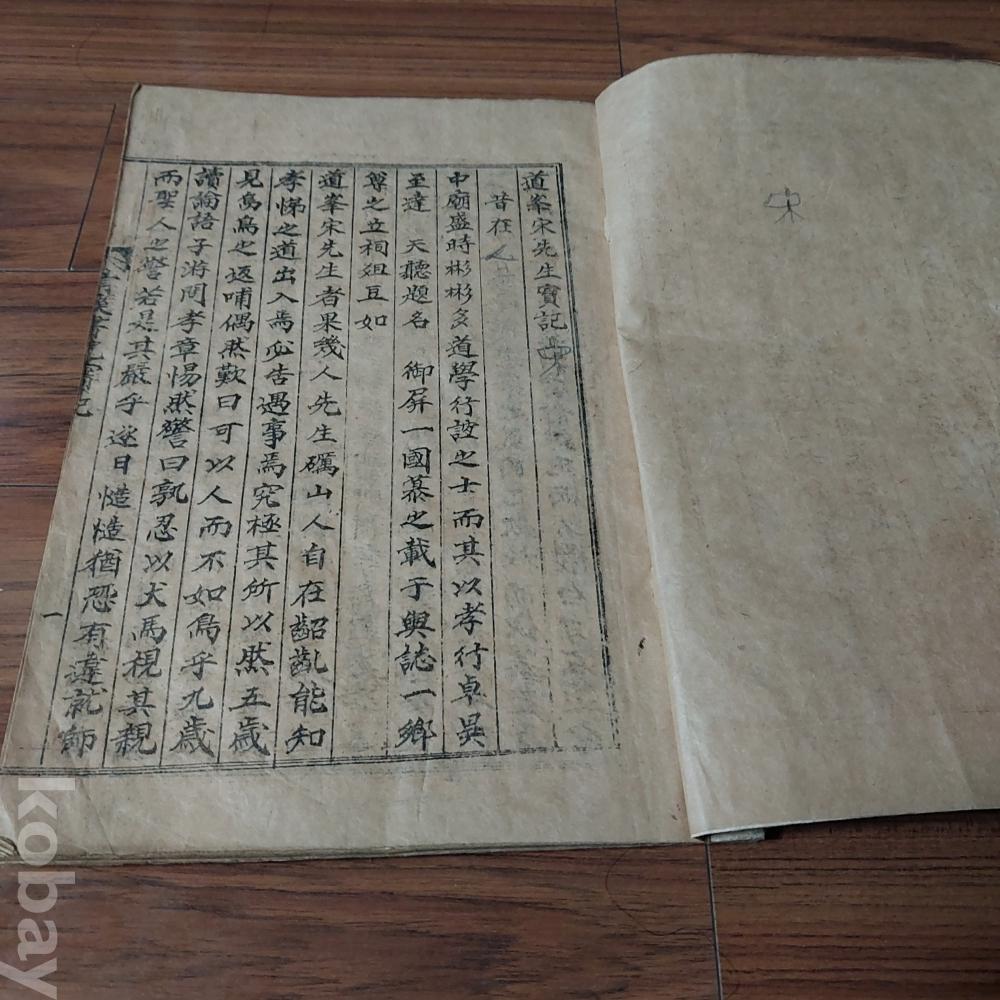 道峯宋先生實記
昔在
中廟盛時彬彬多道學行誼之士而其以孝行卓異
至達 天聽題名 御屛一國慕之載于輿誌一鄉
尊之立祠俎豆如
道峯宋先生者果幾人先生礪山人自在齠齔能知
孝悌之道出入焉必告遇事焉究極其所以然五歲
見烏鳥之返哺偶然歎曰可以人而不如鳥乎九歲
讀論語子游問孝章惕然驚曰孰忍以犬馬視其親
而聖人之警若是其嚴乎逐日慥慥猶恐有違就師
一
kobay